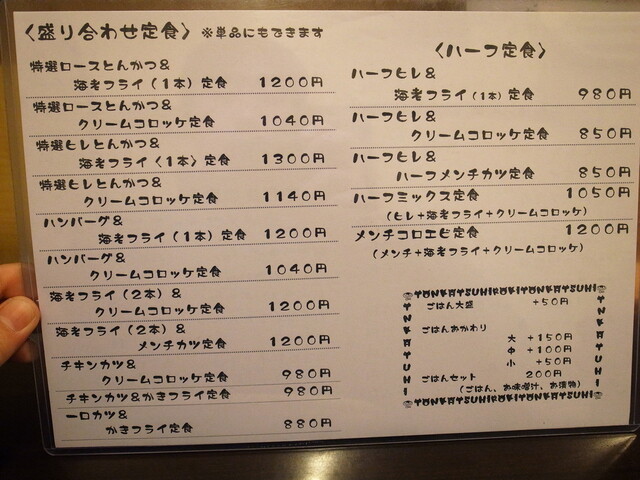 〈盛り合わせ定食〉 ※単品にもできます
特選ロースとんかつ&
海老フライ(1本)定食 1200円
特選ロースとんかつ&
クリームコロッケ定食 1040円
特選ヒレとんかつ&
海老フライ(1本)定食 1300円
特選ヒレとんかつ&
クリームコロッケ定食 1140円
ハンバーグ&
海老フライ(1本)定食 1200円
ハンバーグ&
クリームコロッケ定食 1040円
海老フライ(2本)&
クリームコロッケ定食 1200円
海老フライ(2本)&
メンチカツ定食 1200円
チキンカツ&
クリームコロッケ定食 980円
チキンカツ&かきフライ定食 980円
一口カツ&
かきフライ定食 880円
〈ハーフ定食〉
ハーフヒレ&
海老フライ(1本)定食 980円
ハーフヒレ&
クリームコロッケ定食 850円
ハーフヒレ&
ハーフメンチカツ定食 850円
ハーフミックス定食 1050円
(ヒレ+海老フライ+クリームコロッケ)
メンチコロエビ定食 1200円
(メンチ+海老フライ+クリームコロッケ)
ごはん大盛 +50円
ごはんおかわり
大 +150円
中 +100円
小 +50円
ごはんセット 200円
(ごはん、お味噌汁、お漬物)